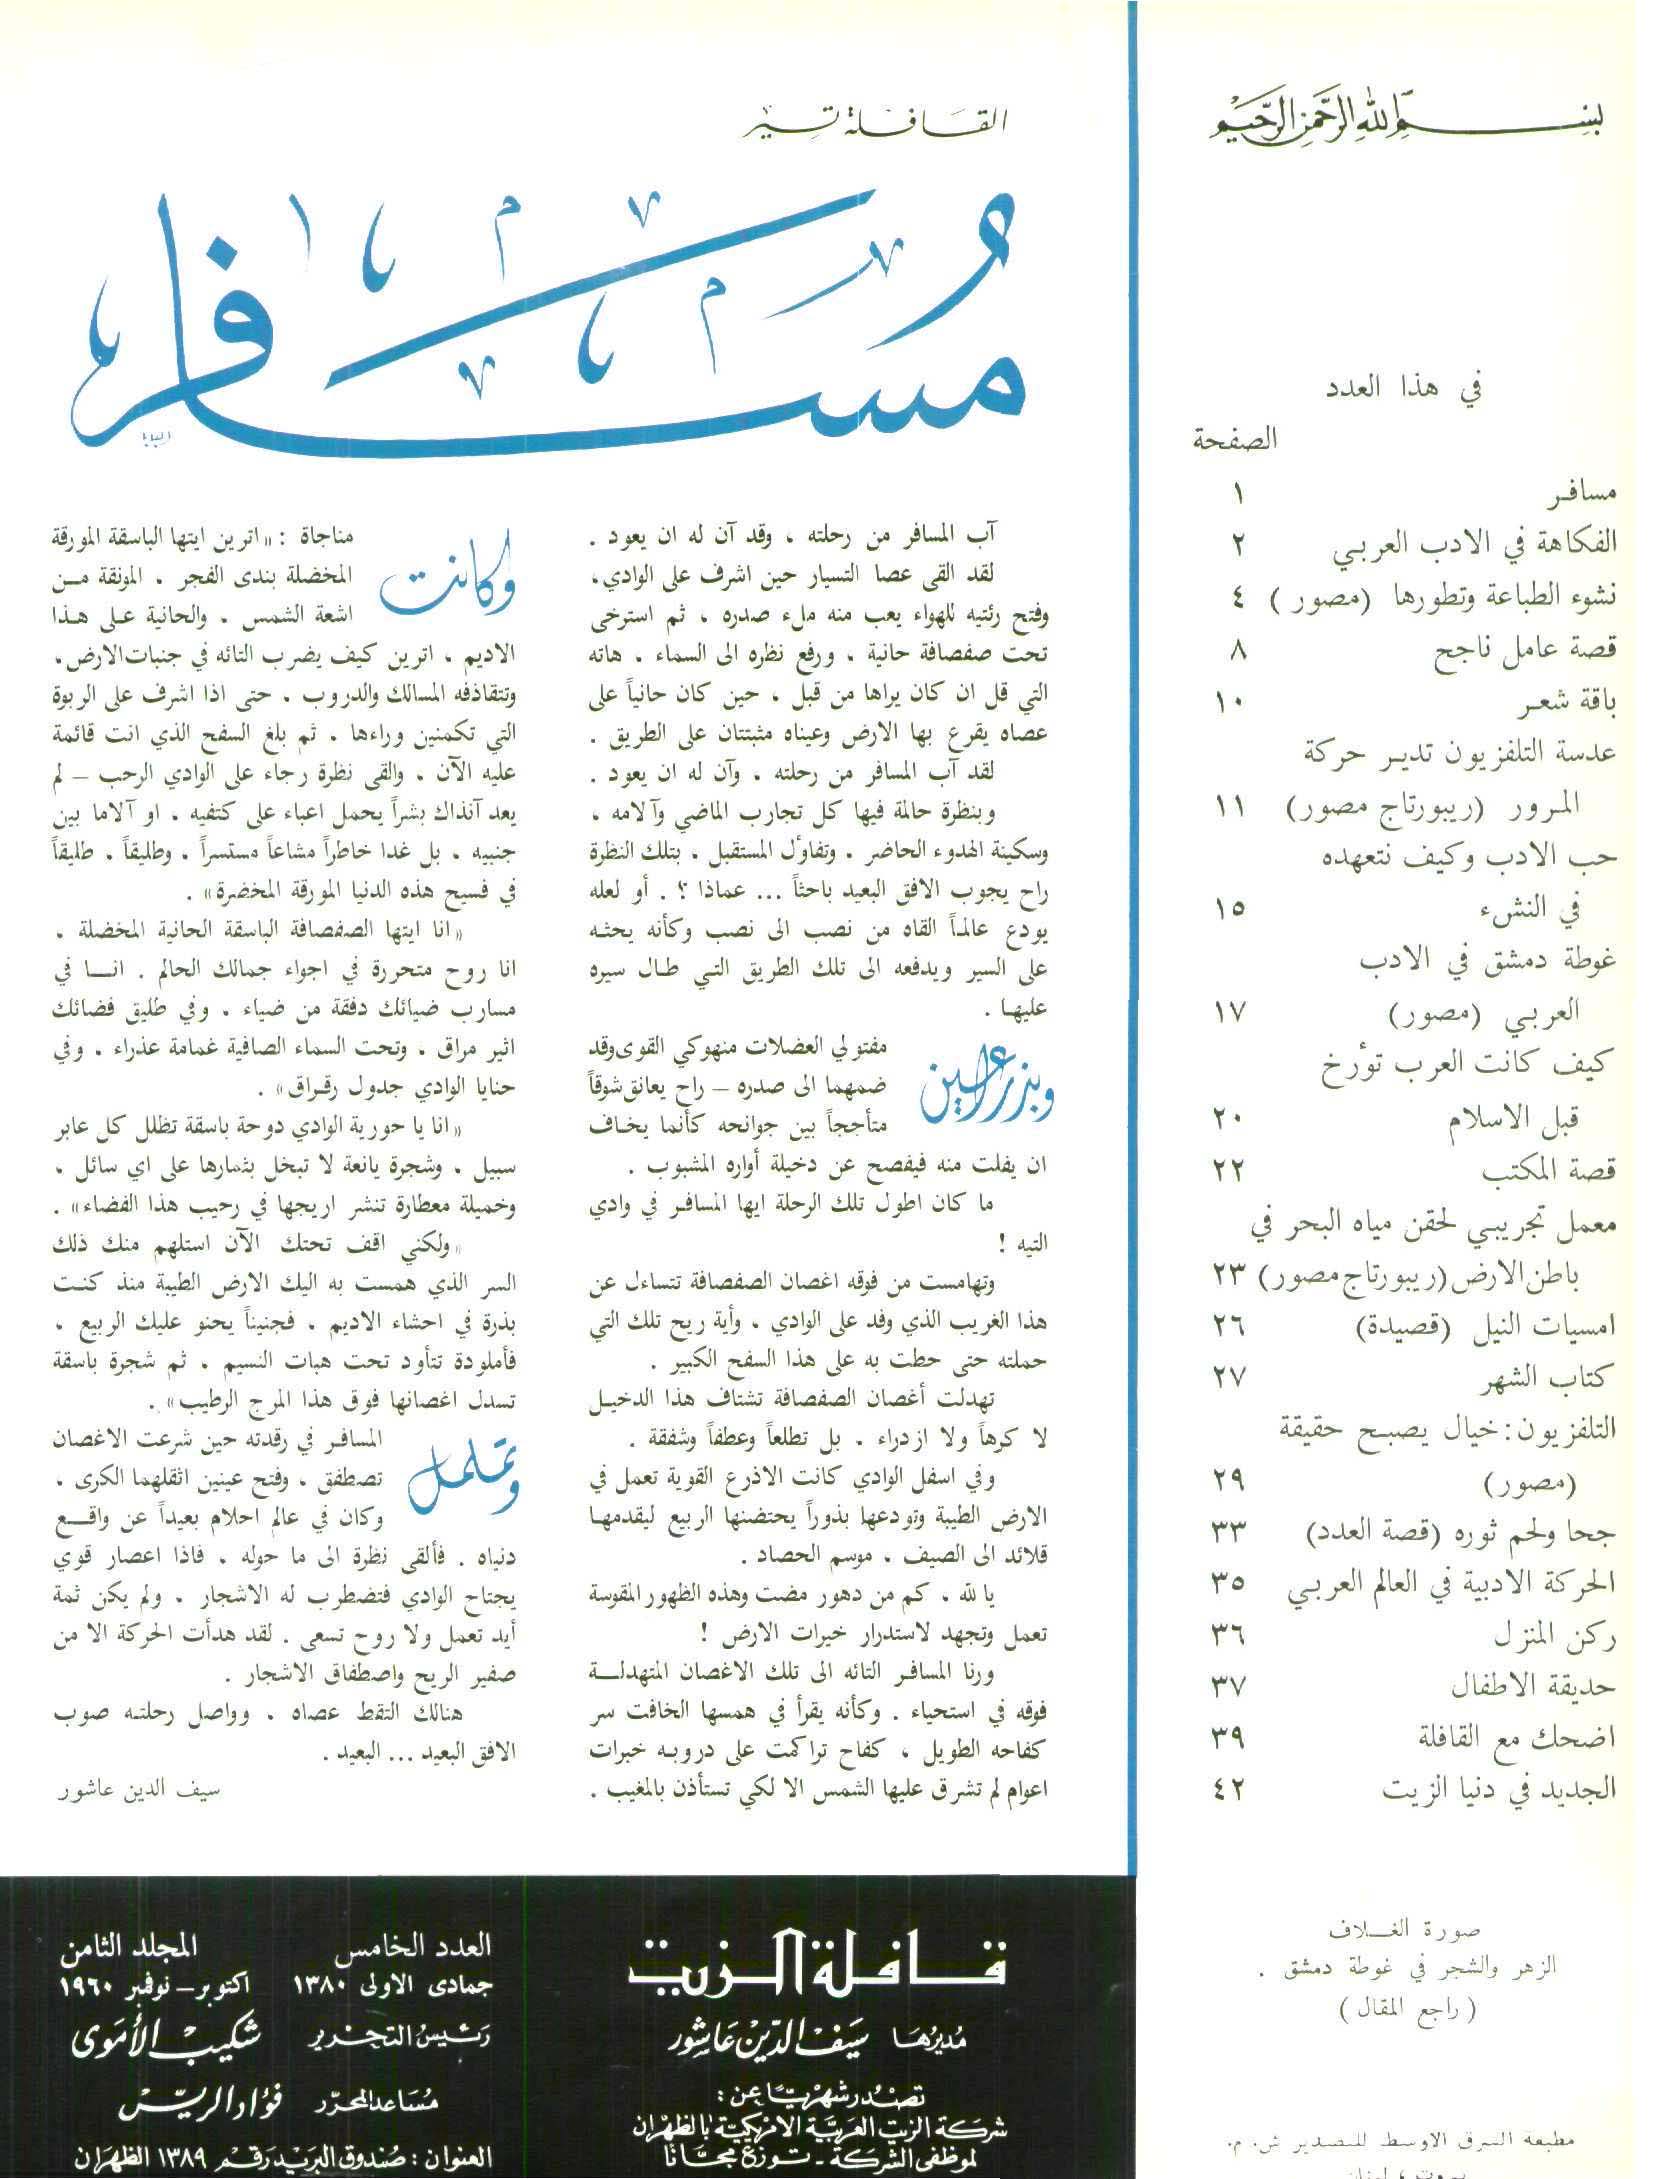 بسم الله الرحمن الرحيم
في هذا العدد
الصفحة
مسافر ١
الفكاهة في الادب العربي ٢
نشوء الطباعة وتطورها (مصور) ٤
قصة عامل ناجح ٨
باقة شعر ١٠
عدسة التلفزيون تدير حركة
المرور (ريبورتاج مصور) ١١
حب الادب وكيف نتعهده
في النشء ١٥
غوطة دمشق في الادب
العربي (مصور) ١٧
كيف كانت العرب تؤرخ
قبل الاسلام ٢٠
قصة المكتب ٢٢
معمل تجريبي لحقن مياه البحر في
باطن الارض (ريبورتاج مصور) ٢٣
امسيات النيل (قصيدة) ٢٦
كتاب الشهر ٢٧
التلفزيون: خيال يصبح حقيقة
(مصور) ٢٩
جحا ولحم ثوره (قصة العدد) ٣٣
الحركة الادبية في العالم العربي ٣٥
ركن المنزل ٣٦
حديقة الاطفال ٣٧
اضحك مع القافلة ٣٩
الجديد في دنيا الزيت ٤٢
صورة الغلاف
الزهر والشجر في غوطة دمشق .
( راجع المقال )
مطبعة الشرق الاوسط للتصدير ش. م.
بيروت ، لبنان
القافلة تسير
مسافر
آب المسافر من رحلته ، وقد آن له ان يعود .
لقد القى عصا التسيار حين اشرف على الوادي،
وفتح رئتيه للهواء يعب منه ملء صدره ، ثم استرخى
تحت صفصافة حانية ، ورفع نظره الى السماء ، هاته
التي قل ان كان يراها من قبل ، حين كان حانياً على
عصاه يقرع بها الارض وعيناه مثبتتان على الطريق .
لقد آب المسافر من رحلته ، وآن له ان يعود .
وبنظرة حالمة فيها كل تجارب الماضي وآلامه ،
وسكينة الهدوء الحاضر ، وتفاؤل المستقبل ، بتلك النظرة
راح يجوب الافق البعيد باحثاً ... عماذا ؟ . أو لعله
يودع عالماً القاه من نصب الى نصب وكأنه يحثه
على السير ويدفعه الى تلك الطريق التي طال سيره
عليها .
وبذراعين
مفتولي العضلات منهوكي القوى وقد
ضمهما الى صدره – راح يعانق شوقاً
متأججاً بين جوانحه كأنما يخاف
ان يفلت منه فيفصح عن دخيلة أواره المشبوب .
ما كان اطول تلك الرحلة ايها المسافر في وادي
التيه !
وتهامست من فوقه اغصان الصفصافة تتساءل عن
هذا الغريب الذي وفد على الوادي ، وأية ريح تلك التي
حملته حتى حطت به على هذا السفح الكبير .
تهدلت أغصان الصفصافة تشتاف هذا الدخيل
لا كرهاً ولا ازدراء ، بل تطلعاً وعطفاً وشفقة .
وفي اسفل الوادي كانت الاذرع القوية تعمل في
الارض الطيبة وتودعها بذوراً يحتضنها الربيع ليقدمها
قلائد الى الصيف ، موسم الحصاد .
يا لله ، كم من دهور مضت وهذه الظهور المقوسة
تعمل وتجهد لاستدرار خيرات الارض !
ورنا المسافر التائه الى تلك الاغصان المتهدلة
فوقه في استحياء . وكأنه يقرأ في همسها الخافت سر
كفاحه الطويل ، كفاح تراكمت على دروبه خبرات
اعوام لم تشرق عليها الشمس الا لكي تستأذن بالمغيب .
وكانت
مناجاة : «اترين ايتها الباسقة المورقة
المخضلة بندى الفجر ، المونقة من
اشعة الشمس ، والحانية على هذا
الاديم ، اترين كيف يضرب التائه في جنبات الارض،
وتتقاذفه المسالك والدروب ، حتى اذا اشرف على الربوة
التي تكمنين وراءها ، ثم بلغ السفح الذي انت قائمة
عليه الآن ، والقى نظرة رجاء على الوادي الرحب – لم
يعد آنذاك بشراً يحمل اعباء على كتفيه ، او آلاما بين
جنبيه ، بل غدا خاطراً مشاعاً مستسراً ، وطليقاً ، طليقاً
في فسيح هذه الدنيا المورقة المخضرة» .
«انا ايتها الصفصافة الباسقة الحانية المخضلة ،
انا روح متحررة في اجواء جمالك الحالم . انا في
مسارب ضيائك دفقة من ضياء ، وفي طليق فضائك
اثير مراق ، وتحت السماء الصافية غمامة عذراء ، وفي
حنايا الوادي جدول رقراق» .
«انا يا حورية الوادي دوحة باسقة تظلل كل عابر
سبيل ، وشجرة يانعة لا تبخل بثمارها على اي سائل ،
وخميلة معطارة تنشر اريجها في رحيب هذا الفضاء» .
«ولكني اقف تحتك الآن استلهم منك ذلك
السر الذي همست به اليك الارض الطيبة منذ كنت
بذرة في احشاء الاديم ، فجنيناً يحنو عليك الربيع ،
فأملودة تتأود تحت هبات النسيم ، ثم شجرة باسقة
تسدل اغصانها فوق هذا المرج الرطيب» .
وتململ
المسافر في رقدته حين شرعت الاغصان
تصطفق ، وفتح عينين اثقلهما الكرى ،
وكان في عالم احلام بعيداً عن واقع
دنياه . فألقى نظرة الى ما حوله ، فاذا اعصار قوي
يجتاح الوادي فتضطرب له الاشجار ، ولم يكن ثمة
أيد تعمل ولا روح تسعى . لقد هدأت الحركة الا من
صفير الريح واصطفاق الاشجار .
هنالك التقط عصاه ، وواصل رحلته صوب
الافق البعيد ... البعيد .
سيف الدين عاشور
قافلة الزيت
مديرها سيف الدين عاشور
تصدر شهرياً عن :
شركة الزيت العربية الامريكية بالظهران
لموظفي الشركة - توزع مجانا
العدد الخامس المجلد الثامن
جمادى الاولى ١٣٨٠ اكتوبر – نوفمبر ١٩٦٠
رئيس التحرير شكيب الأموي
مساعد المحرر فؤاد الريس
العنوان : صندوق البريد رقم ١٣٨٩ الظهران